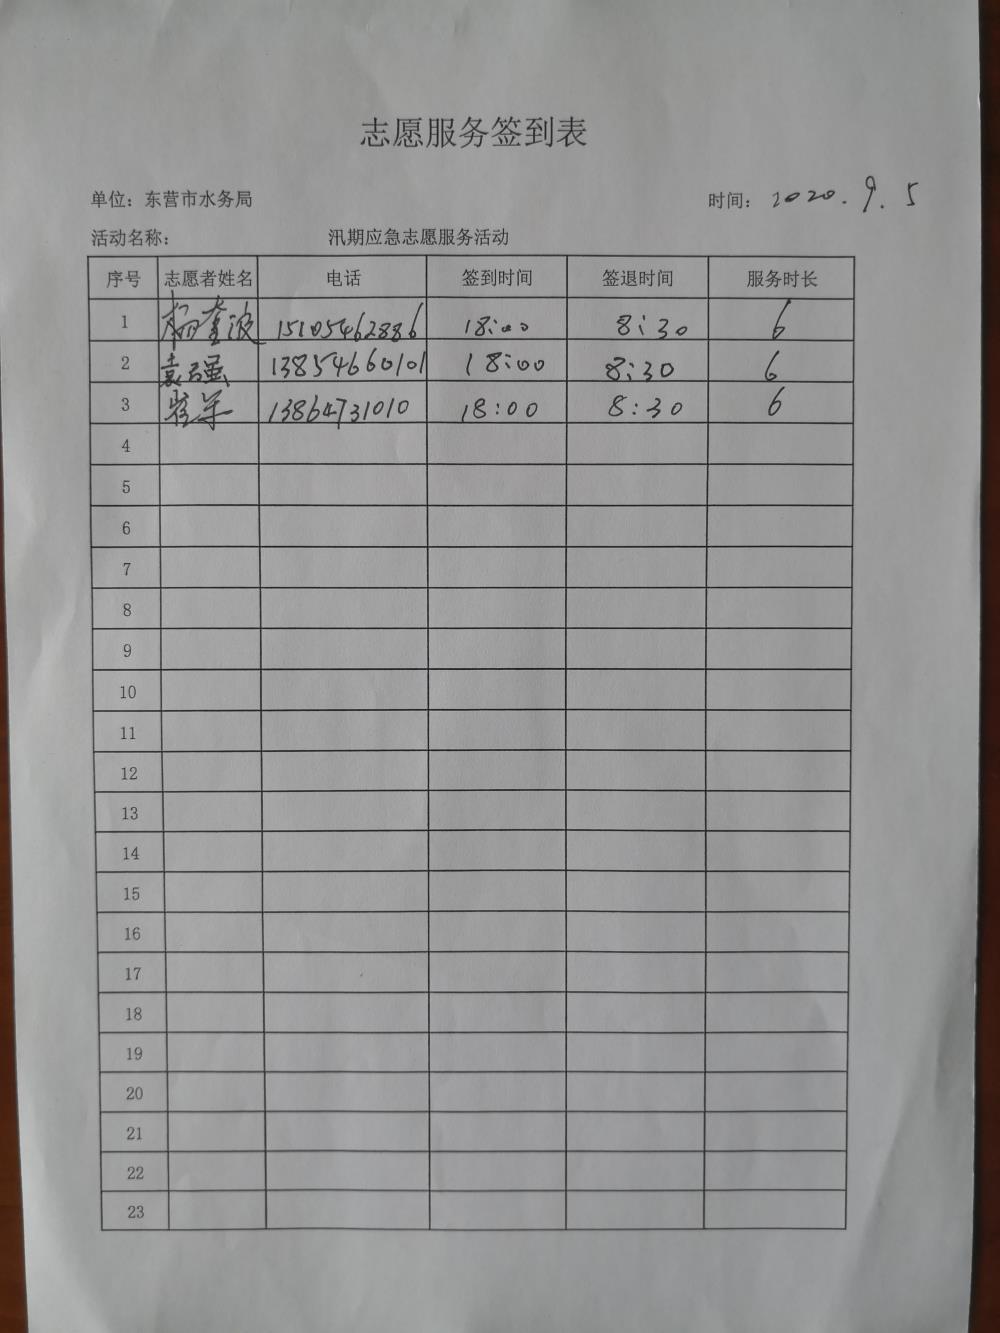 志愿服务签到表
单位：东营市水务局 时间：2020.9.5
活动名称： 汛期应急志愿服务活动
序号 志愿者姓名 电话 签到时间 签退时间 服务时长
1 杨奎波 15105462886 18:00 8:30 6
2 袁强 13854660101 18:00 8:30 6
3 13864731010 18:00 8:30 6
4
5
6
7
8
9
10
11
12
13
14
15
16
17
18
19
20
21
22
23